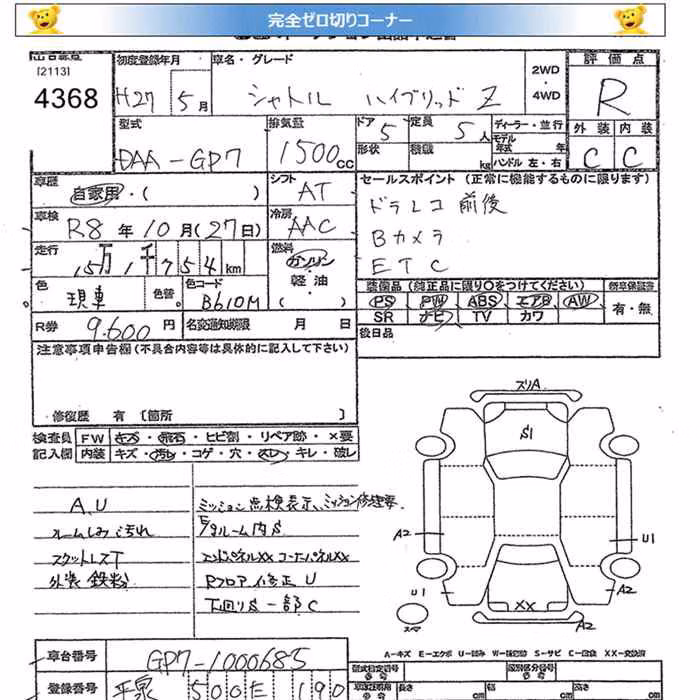 完全ゼロ切りコーナー
[2113]
4368
初度登録年月
H27 5月
車名・グレード
シャトル ハイブリッド Z
2WD・4WD
評価点
R
外装 内装
C C
型式
DAA-GP7
排気量
1500cc
ドア 5
定員 5人
形状
積載 kg
ディーラー・並行
モデル年式 年式
ハンドル 左・右
車歴
自家用・( )
シフト
AT
車検
R8年10月(27日)
冷房
AAC
走行
15万1千754km
燃料
ガソリン・軽油・( )
色
現車
色替
色コード
B610M
R券
9,600円
名変通知期限 月 日
セールスポイント(正常に機能するものに限ります)
ドラレコ 前後
Bカメラ
ETC
装備品(純正品に限り○をつけてください)
新車保証書
PS PW ABS エアB AW
SR ナビ TV カワ
有・無
後日品
注意事項申告欄(不具合内容等は具体的に記入して下さい)
修復歴 有 [箇所 ]
検査員記入欄
FW キズ・飛石・ヒビ割・リペア跡・×要
内装 キズ・汚れ・コゲ・穴・スレ・キレ・破レ
A, U
ルームしみ汚れ
外装 鉄粉
ミッション点検表示、ミッション修理要
ルーム内S
エンドパネルXX コーナーパネルXX
Rフロア修正 U
下回りS 一部C
スリA
S1
A2
U1
A2
A2
XX
U1
スマ
A-キズ E-エクボ U-凹み W-補修跡 S-サビ C-腐食 XX-交換済
車台番号
GP7-1000685
登録番号
500 190
型式指定番号
類別区分番号
長さ cm
幅 cm
高さ cm